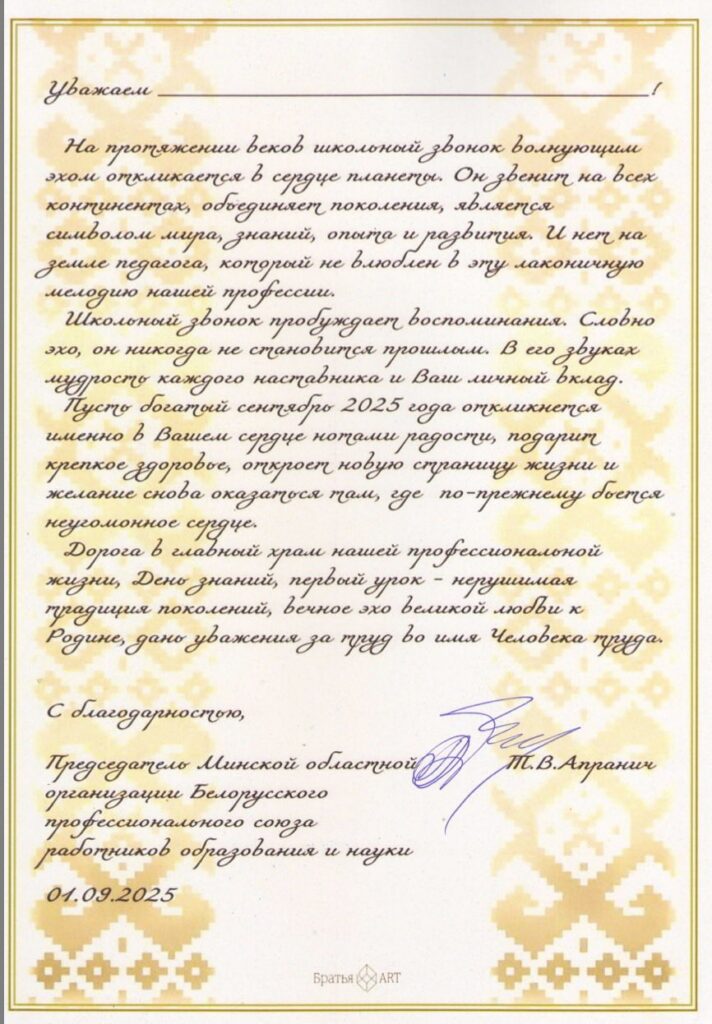 Уважаем ______________________________!
На протяжении веков школьный звонок волнующим
эхом откликается в сердце планеты. Он звенит на всех
континентах, объединяет поколения, является
символом мира, знаний, опыта и развития. И нет на
земле педагога, который не влюблен в эту лаконичную
мелодию нашей профессии.
Школьный звонок пробуждает воспоминания. Словно
эхо, он никогда не становится прошлым. В его звуках
мудрость каждого наставника и Ваш личный вклад.
Пусть богатый сентябрь 2025 года откликнется
именно в Вашем сердце нотами радости, подарит
крепкое здоровье, откроет новую страницу жизни и
желание снова оказаться там, где по-прежнему бьется
неугомонное сердце.
Дорога в главный храм нашей профессиональной
жизни, День знаний, первый урок - нерушимая
традиция поколений, вечное эхо великой любви к
Родине, дань уважения за труд во имя Человека труда.
С благодарностью,
Председатель Минской областной Т.В.Апранич
организации Белорусского
профессионального союза
работников образования и науки
01.09.2025
Братья ART